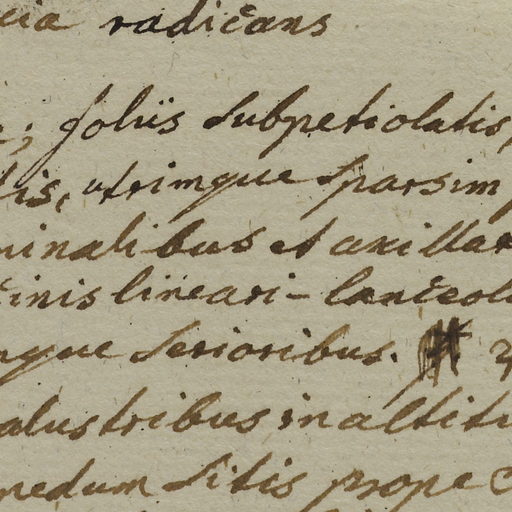 cia radicans
; foliis subpetiolatis,
lis, utrimque sparsim
minalibus et axillar
cinis lineari-lanceol
que serioribus. 4
alustribus in altitu
medum sitis prope